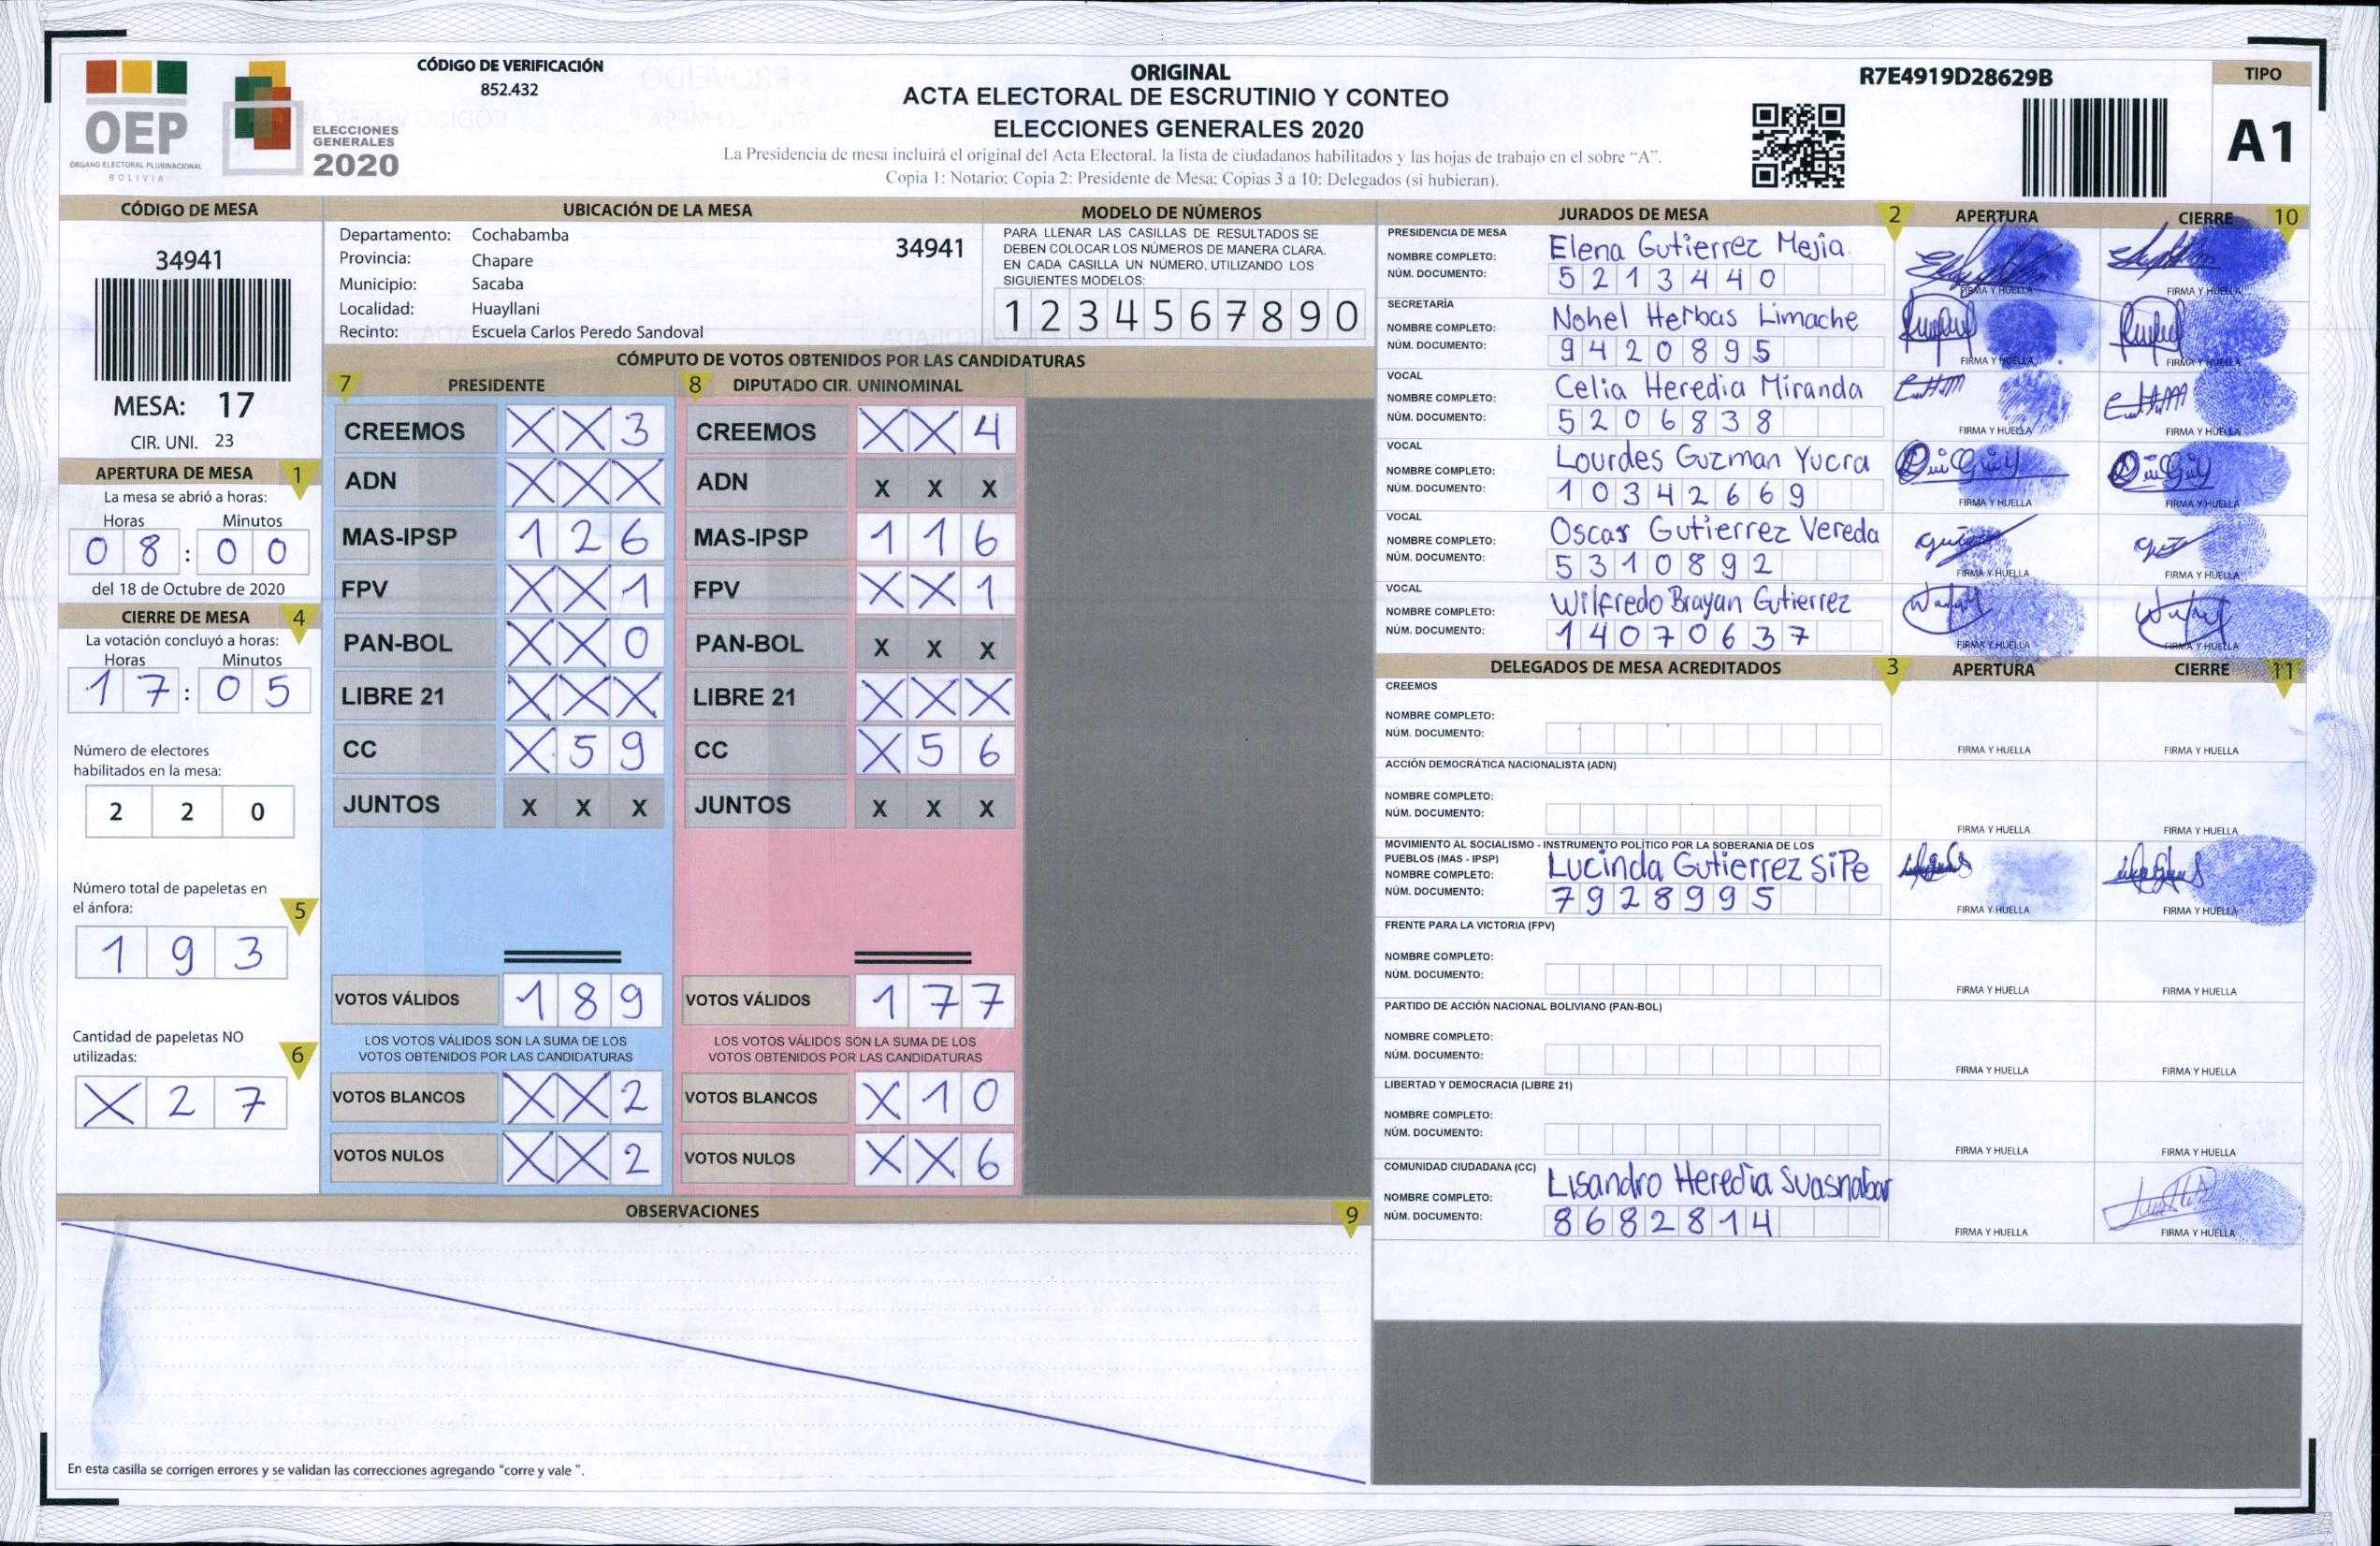 OEP
ÓRGANO ELECTORAL PLURINACIONAL
BOLIVIA
ELECCIONES
GENERALES
2020
CÓDIGO DE VERIFICACIÓN
852.432
ORIGINAL
ACTA ELECTORAL DE ESCRUTINIO Y CONTEO
ELECCIONES GENERALES 2020
La Presidencia de mesa incluirá el original del Acta Electoral, la lista de ciudadanos habilitados y las hojas de trabajo en el sobre “A”.
Copia 1: Notario; Copia 2: Presidente de Mesa; Copias 3 a 10: Delegados (si hubieran).
R7E4919D28629B
TIPO
A1
CÓDIGO DE MESA
34941
MESA: 17
CIR. UNI. 23
APERTURA DE MESA 1
La mesa se abrió a horas:
Horas Minutos
0 8 : 0 0
del 18 de Octubre de 2020
CIERRE DE MESA 4
La votación concluyó a horas:
Horas Minutos
1 7 : 0 5
Número de electores
habilitados en la mesa:
2 2 0
Número total de papeletas en
el ánfora: 5
1 9 3
Cantidad de papeletas NO
utilizadas: 6
X 2 7
UBICACIÓN DE LA MESA
Departamento: Cochabamba
Provincia: Chapare
Municipio: Sacaba
Localidad: Huayllani
Recinto: Escuela Carlos Peredo Sandoval
34941
MODELO DE NÚMEROS
PARA LLENAR LAS CASILLAS DE RESULTADOS SE
DEBEN COLOCAR LOS NÚMEROS DE MANERA CLARA.
EN CADA CASILLA UN NÚMERO, UTILIZANDO LOS
SIGUIENTES MODELOS:
1 2 3 4 5 6 7 8 9 0
CÓMPUTO DE VOTOS OBTENIDOS POR LAS CANDIDATURAS
7 PRESIDENTE 8 DIPUTADO CIR. UNINOMINAL
CREEMOS X X 3 CREEMOS X X 4
ADN X X X ADN X X X
MAS-IPSP 1 2 6 MAS-IPSP 1 1 6
FPV X X 1 FPV X X 1
PAN-BOL X X 0 PAN-BOL X X X
LIBRE 21 X X X LIBRE 21 X X X
CC X 5 9 CC X 5 6
JUNTOS X X X JUNTOS X X X
VOTOS VÁLIDOS 1 8 9 VOTOS VÁLIDOS 1 7 7
LOS VOTOS VÁLIDOS SON LA SUMA DE LOS LOS VOTOS VÁLIDOS SON LA SUMA DE LOS
VOTOS OBTENIDOS POR LAS CANDIDATURAS VOTOS OBTENIDOS POR LAS CANDIDATURAS
VOTOS BLANCOS X X 2 VOTOS BLANCOS X 1 0
VOTOS NULOS X X 2 VOTOS NULOS X X 6
OBSERVACIONES 9
En esta casilla se corrigen errores y se validan las correcciones agregando “corre y vale ”.
JURADOS DE MESA 2 APERTURA CIERRE 10
PRESIDENCIA DE MESA
NOMBRE COMPLETO: Elena Gutierrez Mejia.
NÚM. DOCUMENTO: 5 2 1 3 4 4 0
FIRMA Y HUELLA FIRMA Y HUELLA
SECRETARÍA
NOMBRE COMPLETO: Nohel Herbas Limache
NÚM. DOCUMENTO: 9 4 2 0 8 9 5
FIRMA Y HUELLA FIRMA Y HUELLA
VOCAL
NOMBRE COMPLETO: Celia Heredia Miranda
NÚM. DOCUMENTO: 5 2 0 6 8 3 8
FIRMA Y HUELLA FIRMA Y HUELLA
VOCAL
NOMBRE COMPLETO: Lourdes Guzman Yucra
NÚM. DOCUMENTO: 1 0 3 4 2 6 6 9
FIRMA Y HUELLA FIRMA Y HUELLA
VOCAL
NOMBRE COMPLETO: Oscar Gutierrez Vereda
NÚM. DOCUMENTO: 5 3 1 0 8 9 2
FIRMA Y HUELLA FIRMA Y HUELLA
VOCAL
NOMBRE COMPLETO: Wilfredo Brayan Gutierrez
NÚM. DOCUMENTO: 1 4 0 7 0 6 3 7
FIRMA Y HUELLA FIRMA Y HUELLA
DELEGADOS DE MESA ACREDITADOS 3 APERTURA CIERRE 11
CREEMOS
NOMBRE COMPLETO:
NÚM. DOCUMENTO:
FIRMA Y HUELLA FIRMA Y HUELLA
ACCIÓN DEMOCRÁTICA NACIONALISTA (ADN)
NOMBRE COMPLETO:
NÚM. DOCUMENTO:
FIRMA Y HUELLA FIRMA Y HUELLA
MOVIMIENTO AL SOCIALISMO - INSTRUMENTO POLÍTICO POR LA SOBERANIA DE LOS
PUEBLOS (MAS - IPSP)
NOMBRE COMPLETO: Lucinda Gutierrez SiPe
NÚM. DOCUMENTO: 7 9 2 8 9 9 5
FIRMA Y HUELLA FIRMA Y HUELLA
FRENTE PARA LA VICTORIA (FPV)
NOMBRE COMPLETO:
NÚM. DOCUMENTO:
FIRMA Y HUELLA FIRMA Y HUELLA
PARTIDO DE ACCIÓN NACIONAL BOLIVIANO (PAN-BOL)
NOMBRE COMPLETO:
NÚM. DOCUMENTO:
FIRMA Y HUELLA FIRMA Y HUELLA
LIBERTAD Y DEMOCRACIA (LIBRE 21)
NOMBRE COMPLETO:
NÚM. DOCUMENTO:
FIRMA Y HUELLA FIRMA Y HUELLA
COMUNIDAD CIUDADANA (CC)
NOMBRE COMPLETO: Lisandro Heredia Suasnabar
NÚM. DOCUMENTO: 8 6 8 2 8 1 4
FIRMA Y HUELLA FIRMA Y HUELLA